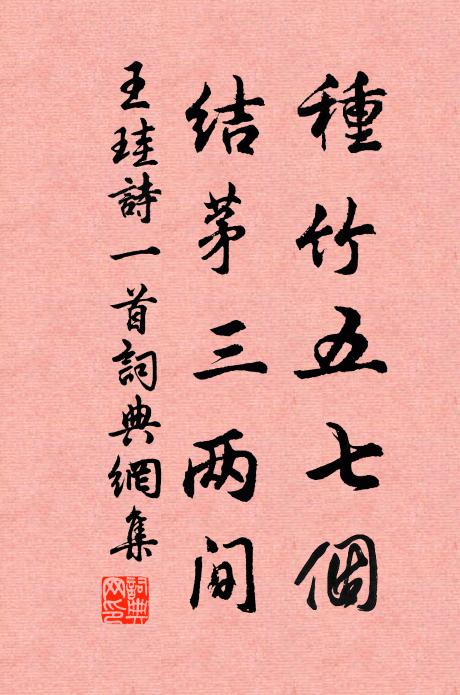 種竹五七個
结茅三两間
王珪詩一首詞典網集
詞典
网印